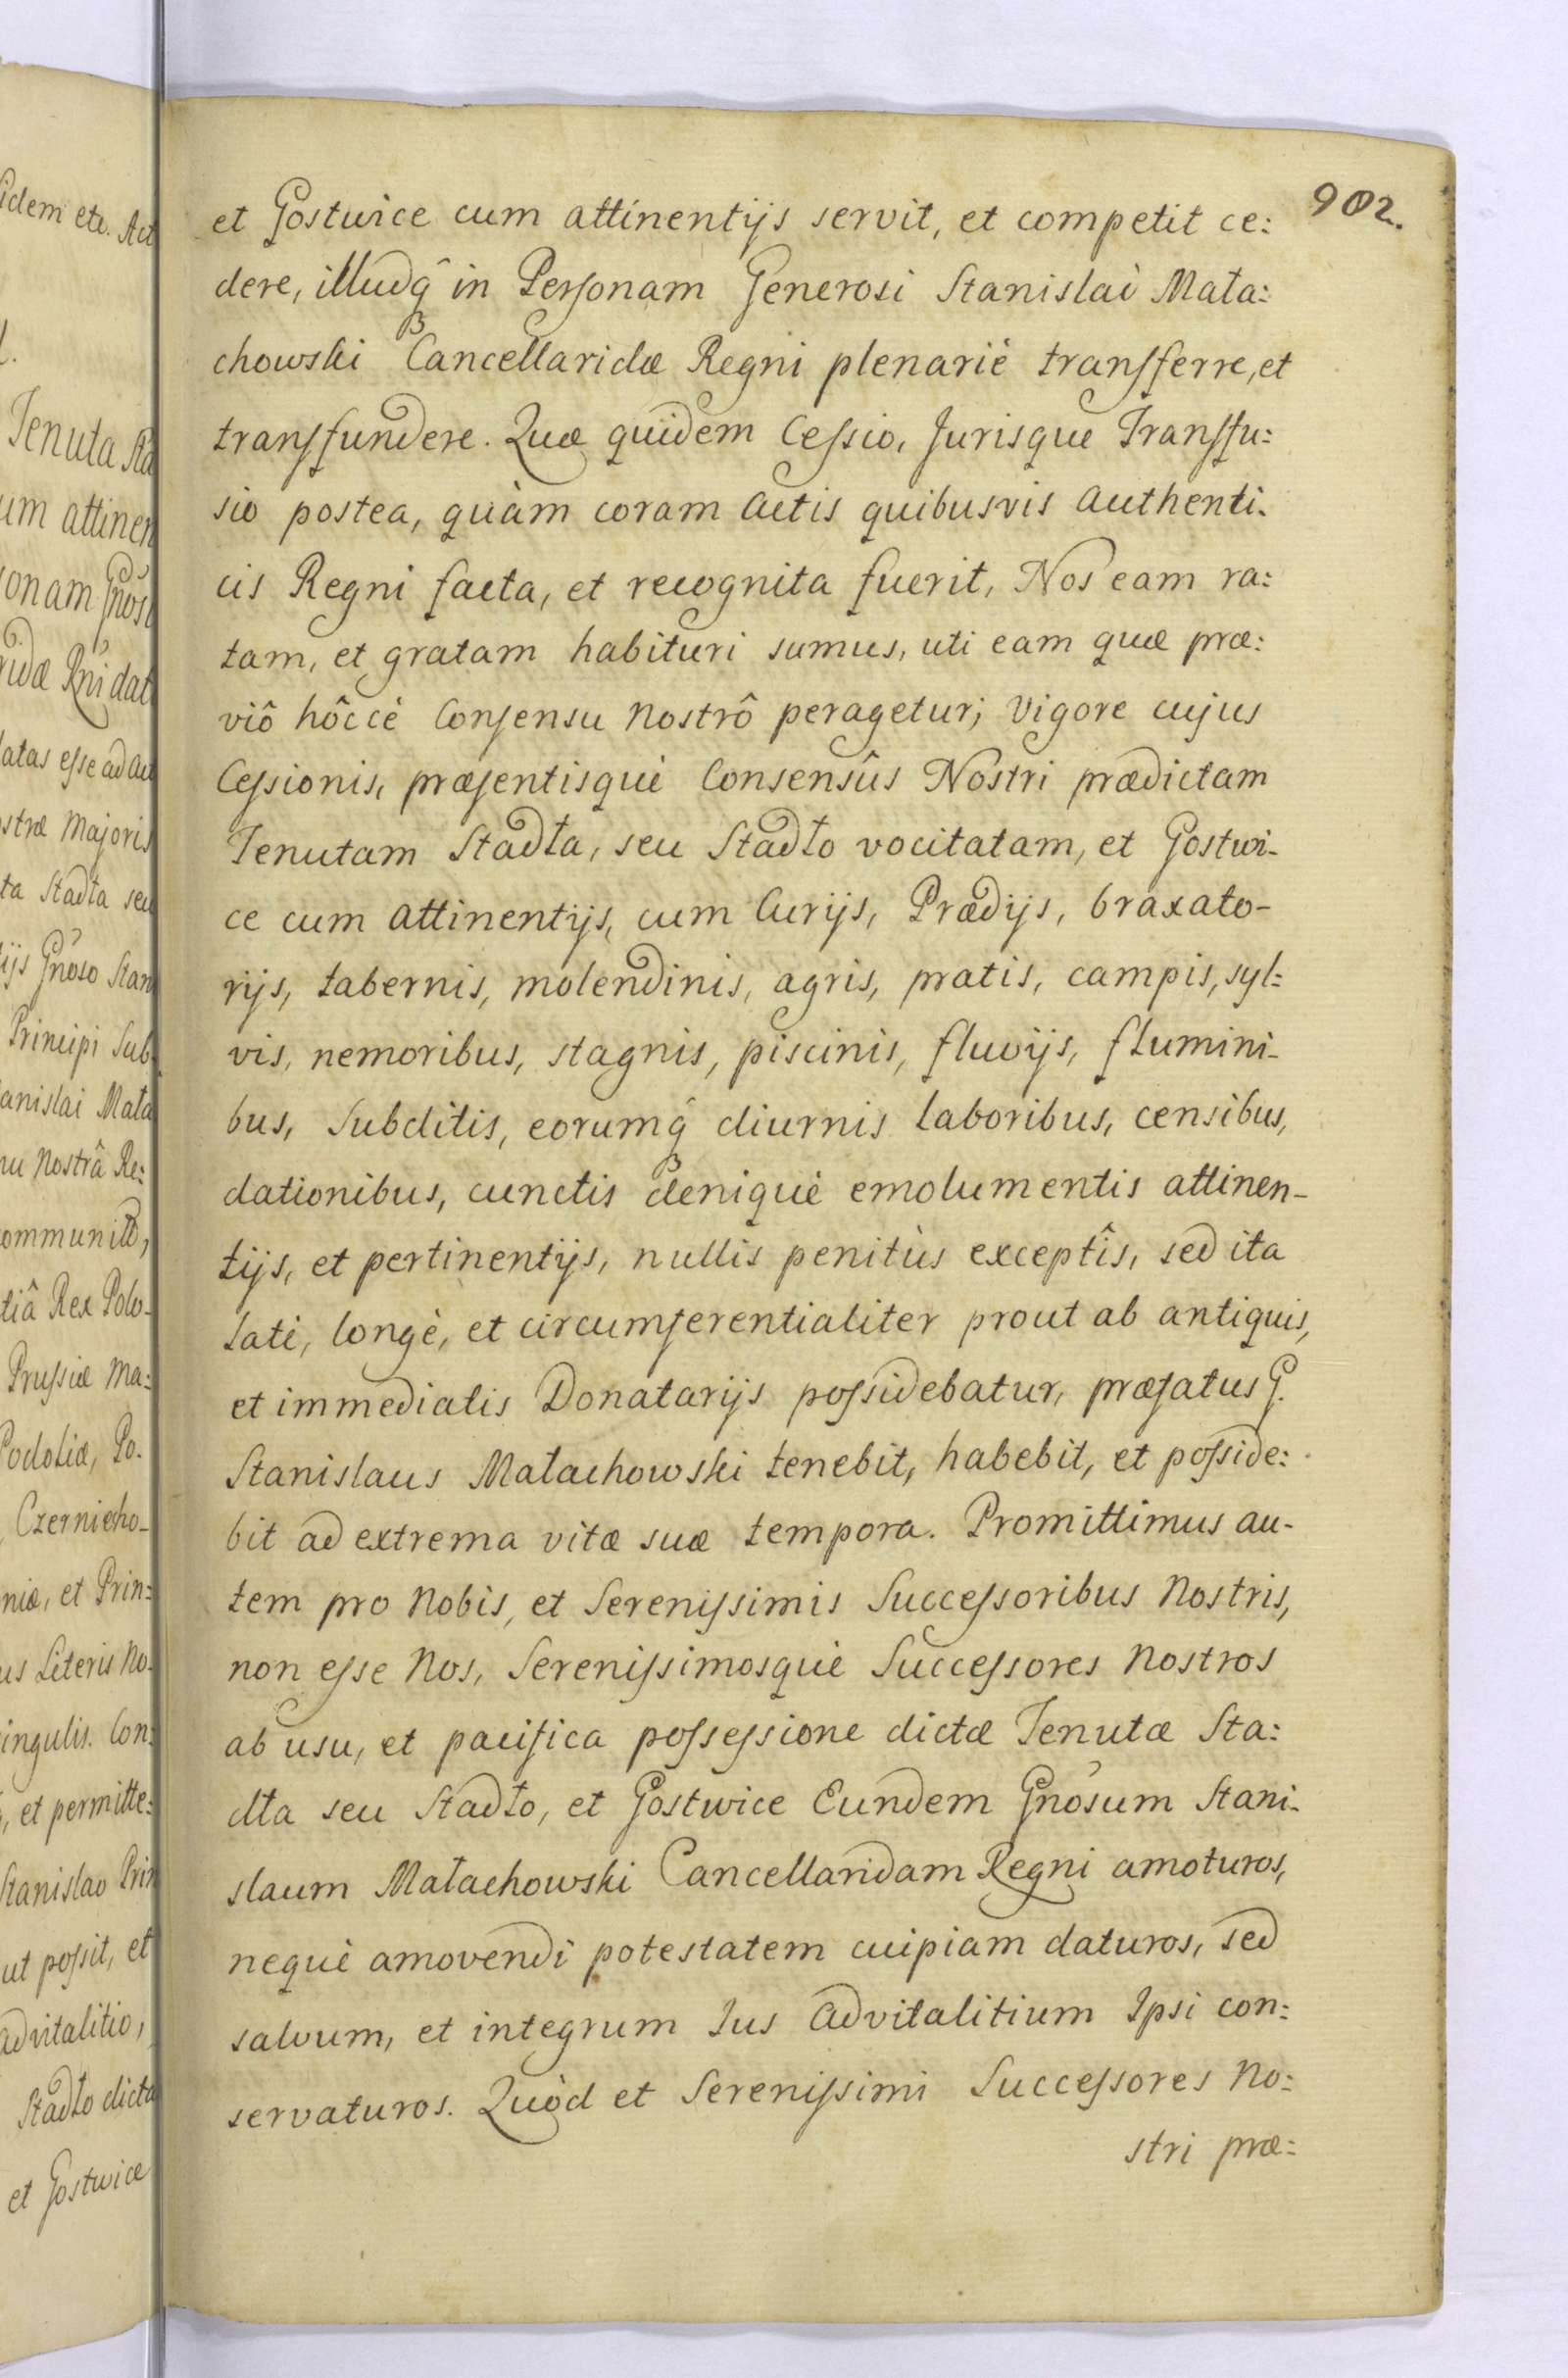 902.
et Gostwice cum attinentijs servit, et competit ce:
dere, illudq̃ in Personam Generosi Stanislai Mała:
chowski Cancellaridæ Regni plenariè transferre, et
transfundere. Quæ quidem Cessio, Jurisque Transfu:
sio postea, quàm coram Actis quibusvis Authenti-
cis Regni facta, et recognita fuerit, Nos eam ra:
tam, et gratam habituri sumus, uti eam quæ præ:
viô hôccè Consensu Nostrô peragetur; Vigore cujus
Cessionis, præsentisquè Consensûs Nostri prædictam
Tenutam Stadła, seu Stadło vocitatam, et Gostwi-
ce cum attinentijs, cum Curijs, Prædijs, braxato-
rijs, tabernis, molendinis, agris, pratis, campis, syl:
vis, nemoribus, stagnis, piscinis, fluvijs, flumini-
bus, Subditis, eorumq̃ diurnis laboribus, censibus,
dationibus, cunctis deniquè emolumentis attinen-
tijs, et pertinentijs, nullis penitùs exceptîs, sed ita
latè, longè, et circumferentialiter prout ab antiquis,
et immediatis Donatarijs possidebatur, præfatus G.
Stanislaus Małachowski tenebit, habebit, et posside:
bit ad extrema vitæ suæ tempora. Promittimus au-
tem pro Nobis, et Serenissimis Successoribus Nostris,
non esse Nos, Serenissimosquè Successores Nostros
ab usu, et pacifica possessione dictæ Tenutæ Sta:
dła seu Stadło, et Gostwice Eundem Gnõsum Stani-
slaum Małachowski Cancellaridam Regni amoturos,
nequè amovendi potestatem cuipiam daturos, sed
salvum, et integrum Ius Advitalitium Ipsi con:
servaturos. Quòd et Serenissimi Successores No:
stri præ: